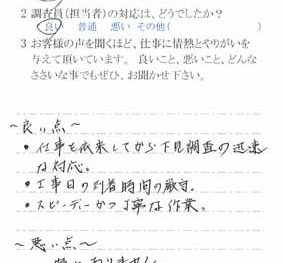 2 調査員(担当者)の対応は、どうでしたか?
良い 普通 悪い その他(          )
3 お客様の声を聞くほど、仕事に情熱とやりがいを
与えて頂いています。 良いこと、悪いこと、どんな
ささいな事でもぜひ、お聞かせ下さい。
~良い点~
・仕事を依頼してから下見調査の迅速
な対応。
・工事日の到着時間の厳守。
・スピーディーかつ丁寧な作業。
~悪い点~
特にありません